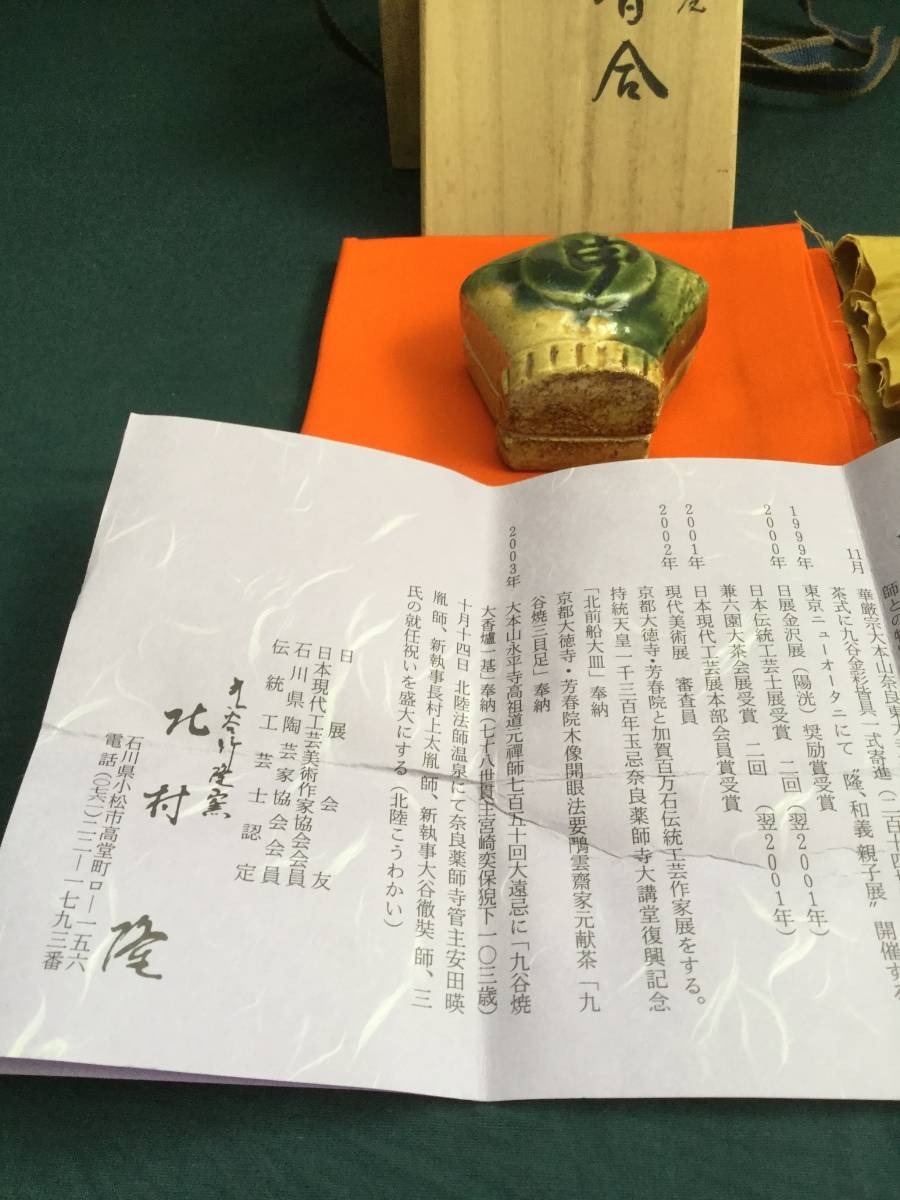 合
師との
華厳宗大本山奈良東大寺
11月
茶式に九谷金彩皆具一式寄進
東京ニューオータニにて〝隆、和義 親子展〟開催する
1999年
日展金沢展（陽洸）奨励賞受賞
2000年
日本伝統工芸士展受賞 二回（翌2001年）
兼六園大茶会展受賞 二回（翌2001年）
2001年
日本現代工芸展本部会員賞受賞
2002年
現代美術展 審査員
京都大徳寺・芳春院と加賀百万石伝統工芸作家展をする。
持統天皇一千三百年玉忌奈良薬師寺大講堂復興記念
「北前船大皿」奉納
京都大徳寺・芳春院木像開眼法要鵬雲齋家元献茶「九
谷焼三目足」奉納
2003年
大本山永平寺高祖道元禅師七百五十回大遠忌に「九谷焼
大香爐一基」奉納（七十八世貫主宮崎奕保猊下一〇三歳）
十月十四日 北陸法師温泉にて奈良薬師寺管主安田暎
胤師、新執事長村上太胤師、新執事大谷徹奘師、三
氏の就任祝いを盛大にする（北陸こうわかい）
日展会友
日本現代工芸美術作家協会会員
石川県陶芸家協会会員
伝統工芸士認定
九谷作隆窯
北村 隆
石川県小松市高堂町ロ－一五六
電話（〇七六一）二二－一七九三番